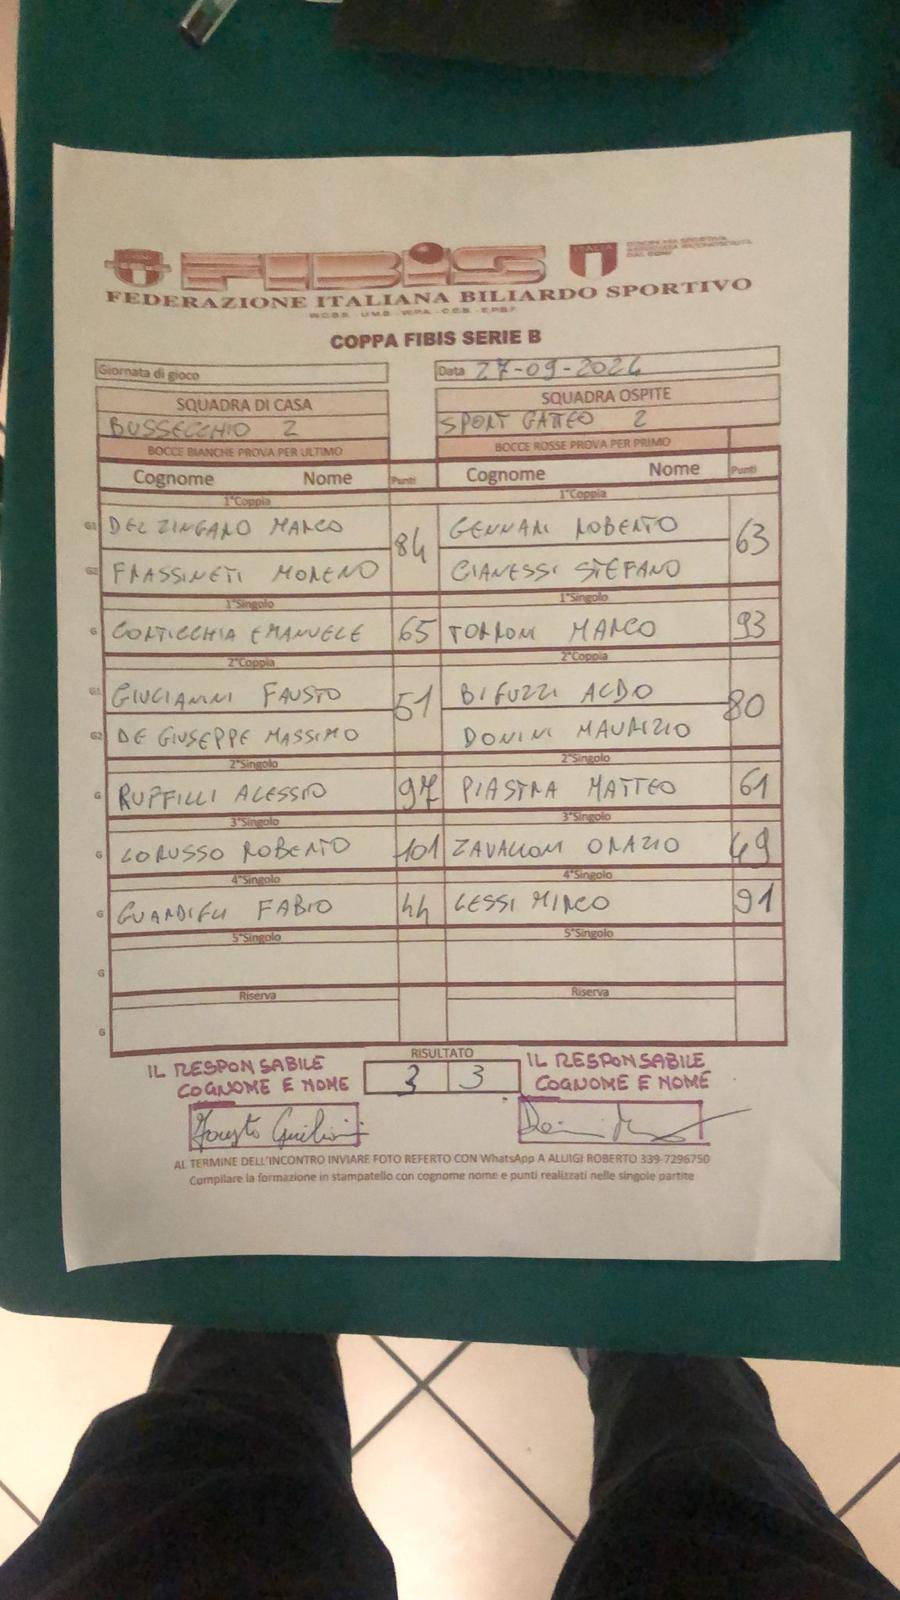 FIBIS
ITALIA
FEDERAZIONE ITALIANA BILIARDO SPORTIVO
COPPA FIBIS SERIE B
Giornata di gioco
Data 27-09-2024
SQUADRA DI CASA SQUADRA OSPITE
BUSSECCHIO 2 SPORT GATTEO 2
BOCCE BIANCHE PROVA PER ULTIMO BOCCE ROSSE PROVA PER PRIMO
Cognome Nome Punti Cognome Nome Punti
1°Coppia 1°Coppia
G1 DEL ZINGARO MARCO 84 GENNARI ROBERTO 63
G2 FRASSINETI MORENO GIANESSI STEFANO
1°Singolo 1°Singolo
G CORTICCHIA EMANUELE 65 TORRONI MARCO 93
2°Coppia 2°Coppia
G1 GIULIANINI FAUSTO 51 BIFUZZI ALDO 80
G2 DE GIUSEPPE MASSIMO DONINI MAURIZIO
2°Singolo 2°Singolo
G RUFFILLI ALESSIO 97 PIASTRA MATTEO 61
3°Singolo 3°Singolo
G LORUSSO ROBERTO 101 ZAVALLONI ORAZIO 49
4°Singolo 4°Singolo
G GUARDIGLI FABIO 44 LESSI MIRCO 91
5°Singolo 5°Singolo
G
Riserva Riserva
G
RISULTATO
3 3
IL RESPONSABILE IL RESPONSABILE
COGNOME E NOME COGNOME E NOME
Fausto Giuliani
AL TERMINE DELL'INCONTRO INVIARE FOTO REFERTO CON WhatsApp A ALUIGI ROBERTO 339-7296750
Compilare la formazione in stampatello con cognome nome e punti realizzati nelle singole partite